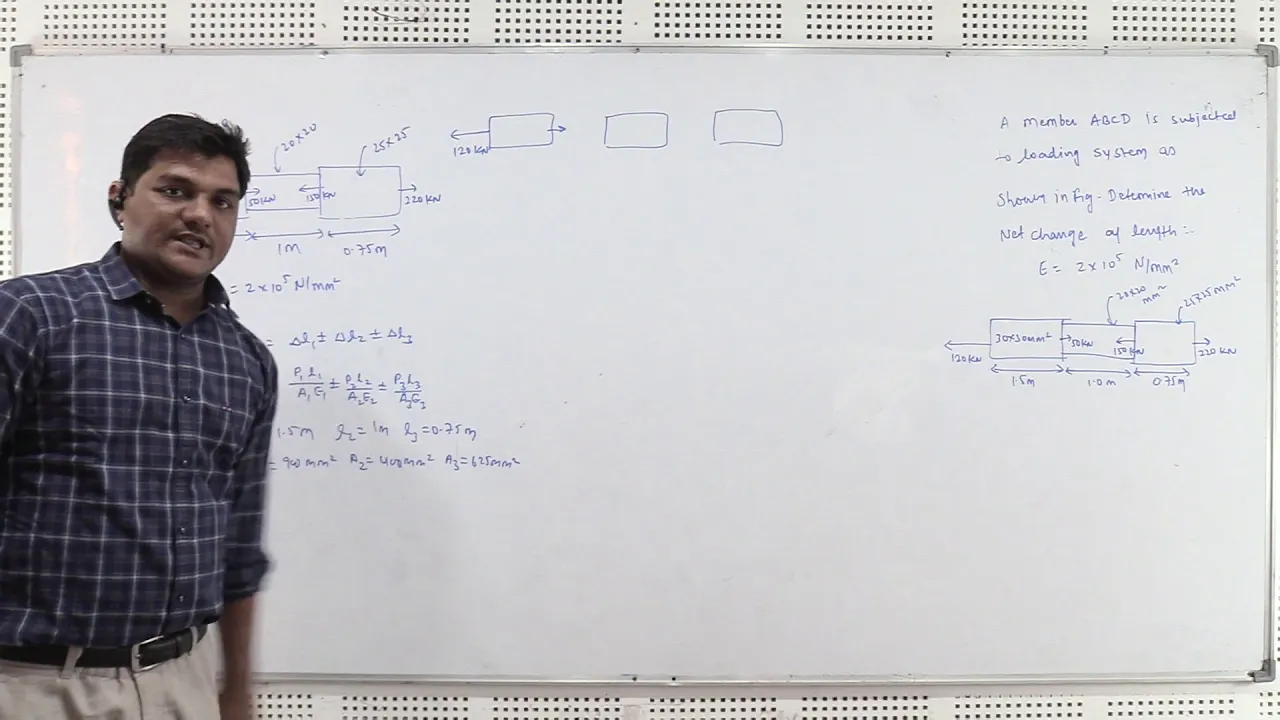 20×20
25×25
50KN
150KN
220KN
1m
0.75m
= 2×10⁵ N/mm²
= Δl₁ ± Δl₂ ± Δl₃
P₁l₁/A₁E₁ ± P₂l₂/A₂E₂ ± P₃l₃/A₃E₃
1.5m l₂=1m l₃=0.75m
= 900mm² A₂=400mm² A₃=625mm²
120KN
A member ABCD is subjected
to loading system as
Shown in fig. Determine the
Net change of length:-
E = 2×10⁵ N/mm²
20×20
mm²
25×25mm²
30×30mm²
120KN
50KN
150KN
220KN
1.5m
1.0m
0.75m